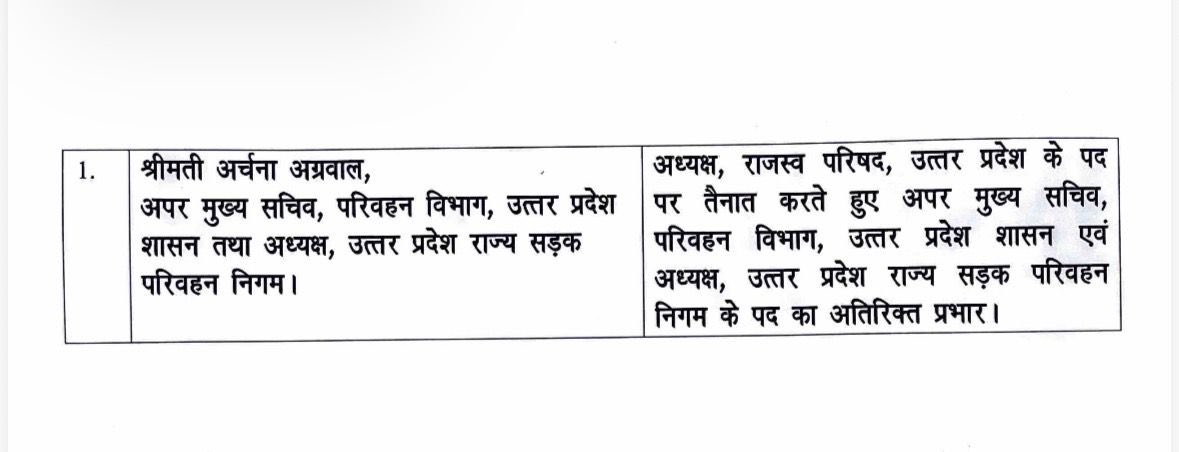 1.
श्रीमती अर्चना अग्रवाल,
अपर मुख्य सचिव, परिवहन विभाग, उत्तर प्रदेश
शासन तथा अध्यक्ष, उत्तर प्रदेश राज्य सड़क
परिवहन निगम।
अध्यक्ष, राजस्व परिषद, उत्तर प्रदेश के पद
पर तैनात करते हुए अपर मुख्य सचिव,
परिवहन विभाग, उत्तर प्रदेश शासन एवं
अध्यक्ष, उत्तर प्रदेश राज्य सड़क परिवहन
निगम के पद का अतिरिक्त प्रभार।